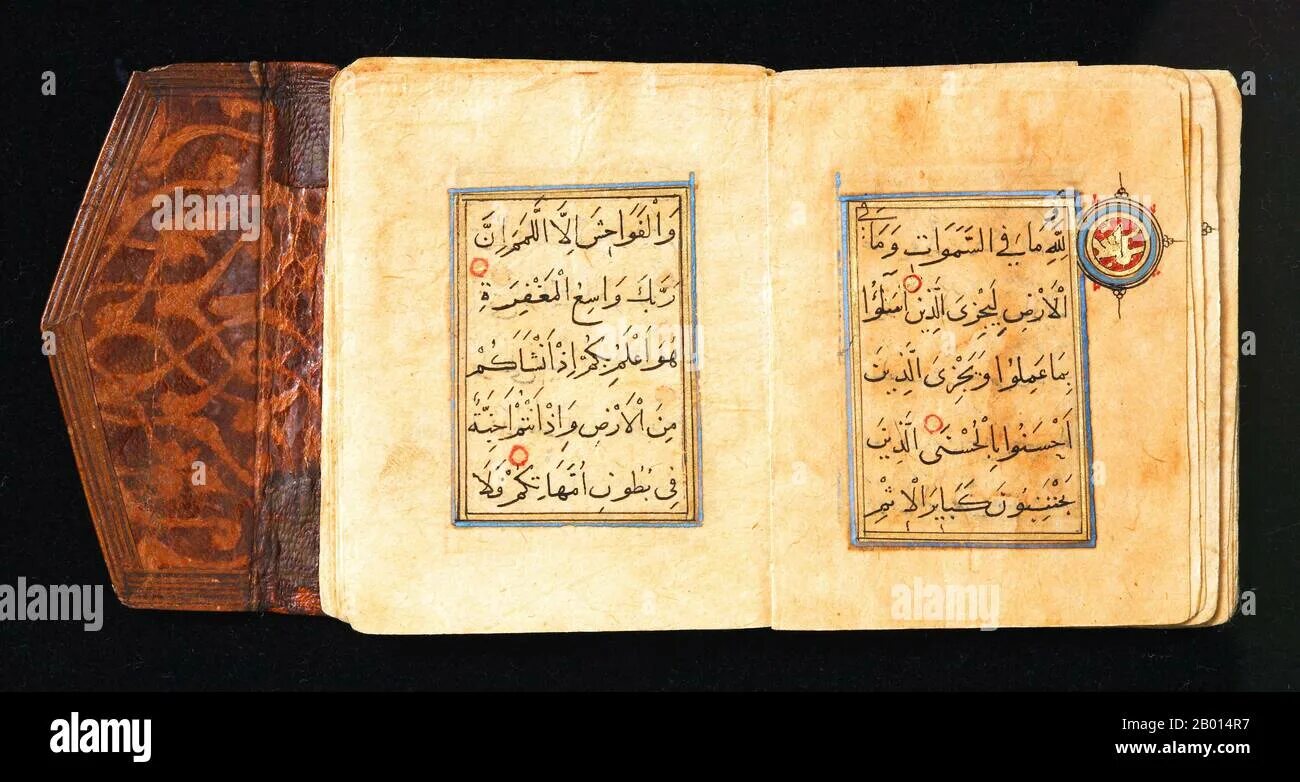 وَلِلّٰهِ مَا فِي السَّمَوَاتِ وَمَا فِي
الْاَرْضِ لِيَجْزِىَ الَّذِينَ اَسَٓئُوا
بِمَا عَمِلُوا وَيَجْزِىَ الَّذِينَ
اَحْسَنُوا بِالْحُسْنَى الَّذِينَ
يَجْتَنِبُونَ كَبَايِرَ الْاِثْمِ
وَالْفَوَاحِشَ اِلَّا اللَّمَمَ اِنَّ
رَبَّكَ وَاسِعُ الْمَغْفِرَةِ
هُوَ اَعْلَمُ بِكُمْ اِذْ اَنْشَاَكُمْ
مِنَ الْاَرْضِ وَاِذْ اَنْتُمْ اَجِنَّةٌ
فِي بُطُونِ اُمَّهَاتِكُمْ فَلَا
alamy
Image ID: 2B014R7
www.alamy.com